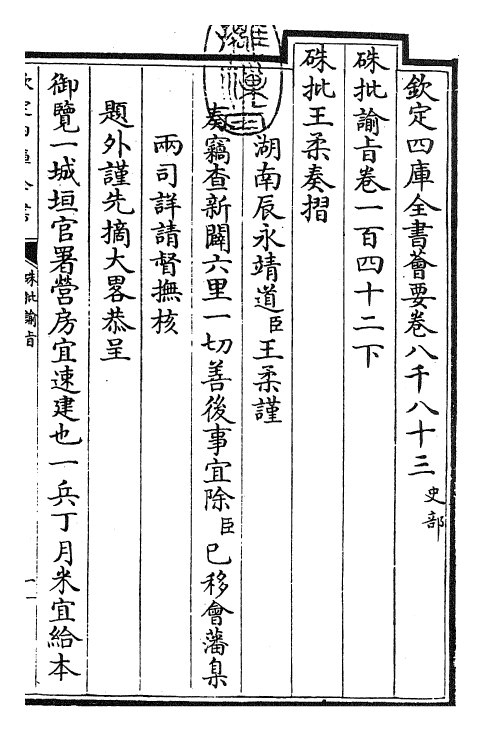 欽定四庫全書薈要卷八千八十三 史部
硃批諭旨卷一百四十二下
硃批王柔奏摺
湖南辰永靖道臣王柔謹
奏竊查新闢六里一切善後事宜除臣已移會藩臬
兩司詳請督撫核
題外謹先摘大畧恭呈
御覽一城垣官署營房宜速建也一兵丁月米宜給本
硃批諭旨